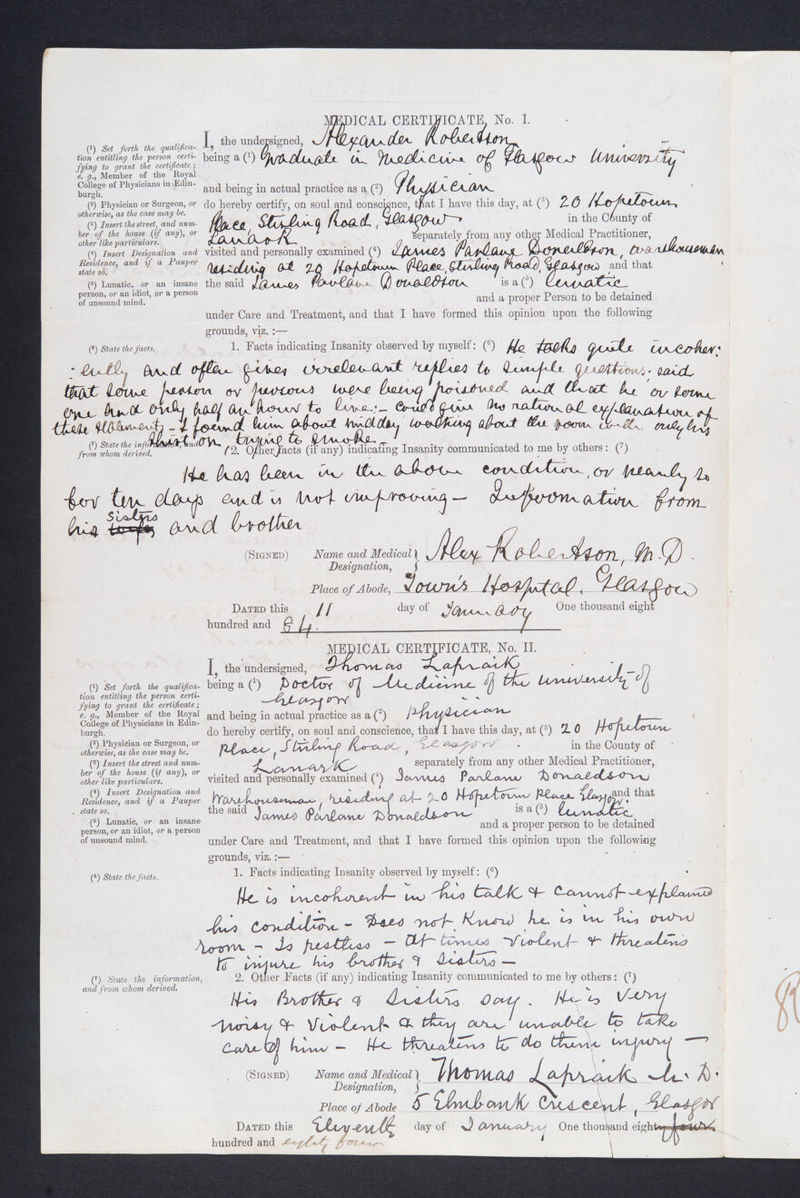 MEDICAL CERTIFICATE, No. I.
I, the undersigned, Alexander Robertson
(¹) Set forth the qualifica-
tion entitling the person certi-
fying to grant the certificate;
e. g., Member of the Royal
College of Physicians in Edin-
burgh.
being a (¹) Graduate in Medicine of Glasgow University
and being in actual practice as a (²) Physician
(²) Physician or Surgeon, or
otherwise, as the case may be.
do hereby certify, on soul and conscience, that I have this day, at (³) 20 Hopetoun
(³) Insert the street, and num-
ber of the house (if any), or
other like particulars.
Place, Stirling Road, Glasgow in the County of
Lanark separately from any other Medical Practitioner,
(⁴) Insert Designation and
Residence, and if a Pauper
state so.
visited and personally examined (⁴) James Parlane Donaldson, Warehouseman
residing at 20 Hopetoun Place, Stirling Road, Glasgow and that
(⁵) Lunatic, or an insane
person, or an idiot, or a person
of unsound mind.
the said James Parlane Donaldson is a (⁵) Lunatic
and a proper Person to be detained
under Care and Treatment, and that I have formed this opinion upon the following
grounds, viz. :—
(⁶) State the facts.
1. Facts indicating Insanity observed by myself: (⁶) He talks quite incoher:
:ently and often gives irrelevant replies to simple questions. said
that some person or persons were being poisoned and that he or some
one had only half an hour to live;- could give no rational explanation of
these statements - I found him about midday walking about the room with only his
shirt on, trying to smoke.-
(⁷) State the information, and
from whom derived.
2. Other facts (if any) indicating Insanity communicated to me by others: (⁷)
He has been in the above condition, or nearly so
for ten days and is not improving - Information from
his Sisters and brother
(SIGNED) Name and Medical Designation, Alex Robertson, M.D.
Place of Abode, Town's Hospital, Glasgow
DATED this 11 day of January One thousand eight
hundred and 84.
MEDICAL CERTIFICATE, No. II.
I, the undersigned, Thomas Lapraik
(¹) Set forth the qualifica-
tion entitling the person certi-
fying to grant the certificate;
e. g., Member of the Royal
College of Physicians in Edin-
burgh.
being a (¹) Doctor of Medicine of the University of
Glasgow
and being in actual practice as a (²) Physician
(²) Physician or Surgeon, or
otherwise, as the case may be.
do hereby certify, on soul and conscience, that I have this day, at (³) 20 Hopetoun
(³) Insert the street and num-
ber of the house (if any), or
other like particulars.
Place, Stirling Road, Glasgow in the County of
Lanark separately from any other Medical Practitioner,
(⁴) Insert Designation and
Residence, and if a Pauper
state so.
visited and personally examined (⁴) James Parlane Donaldson
Warehouseman, residing at 20 Hopetoun Place Glasgow and that
(⁵) Lunatic, or an insane
person, or an idiot, or a person
of unsound mind.
the said James Parlane Donaldson is a (⁵) lunatic
and a proper person to be detained
under Care and Treatment, and that I have formed this opinion upon the following
grounds, viz. :—
(⁶) State the facts.
1. Facts indicating Insanity observed by myself: (⁶)
He is incoherent in his talk & cannot explain
his condition - Does not know he is in his own
room - Is restless - At times violent & threatens
to injure his brother & sisters -
(⁷) State the information,
and from whom derived.
2. Other Facts (if any) indicating Insanity communicated to me by others: (⁷)
His Brother & Sisters say. He is very
noisy & violent & they are unable to take
care of him - He threatens to do them injury -
(SIGNED) Name and Medical Designation, Thomas Lapraik M. D.
Place of Abode 5 Elmbank Crescent, Glasgow
DATED this Eleventh day of January One thousand eight
hundred and eighty four